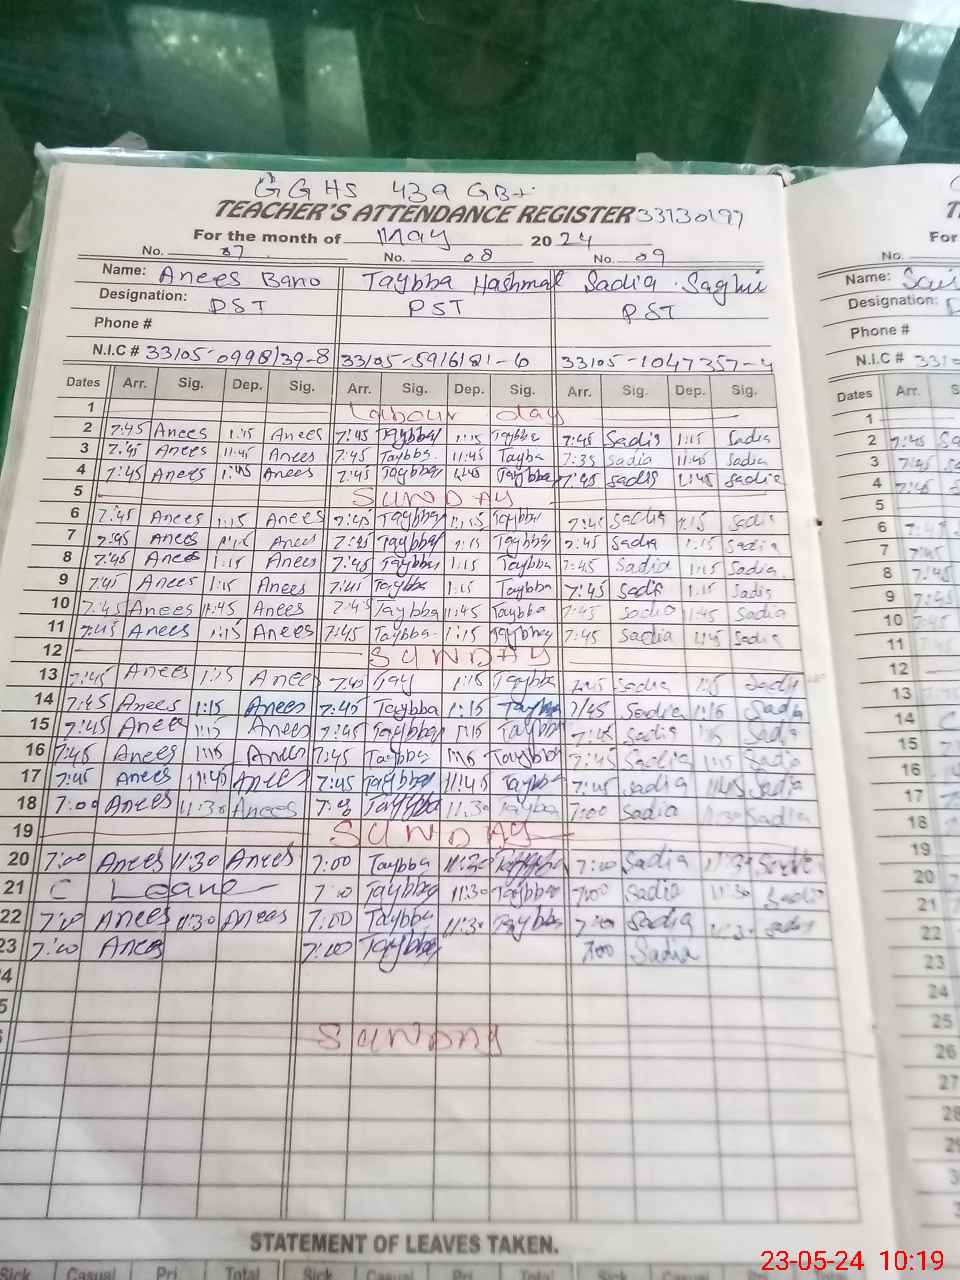 GGHS 439 GB
TEACHER'S ATTENDANCE REGISTER 33130197
For the month of May 2024
No. 07 No. 08 No. 09
Name: Anees Bano Taybba Hashmat Sadia Saghir
Designation: PST PST PST
Phone #
N.I.C #
Dates Arr. Sig. Dep. Sig. Arr. Sig. Dep. Sig. Arr. Sig. Dep. Sig.
1 Labour day
2 7:45 Anees 1:15 Anees 7:45 Taybba 1:15 Taybba 7:45 Sadia 1:15 Sadia
3 7:45 Anees 11:45 Anees 7:45 Taybba 11:45 Tayba 7:35 Sadia 11:45 Sadia
4 7:45 Anees Anees 7:45 Taybba Taybba 7:45 Sadia 1:45 Sadia
5 SUNDAY
6 7:45 Anees 1:15 Anees 7:45 Taybba 1:15 Taybba Sadia 1:15 Sadia
7 7:45 Anees 1:15 Anees 7:45 Taybba 1:15 Taybba 7:45 Sadia 1:15 Sadia
8 7:45 Anees 1:15 Anees 7:45 Taybba 1:15 Taybba 7:45 Sadia 1:15 Sadia
9 7:45 Anees 1:15 Anees 7:45 Taybba 1:15 Taybba 7:45 Sadia 1:15 Sadia
10 7:45 Anees 11:45 Anees 7:45 Taybba 11:45 Taybba 7:45 Sadia 11:45 Sadia
11 7:45 Anees 1:15 Anees 7:45 Taybba 1:15 Taybba 7:45 Sadia Sadia
12 SUNDAY
13 7:45 Anees 1:15 Anees 1:15 Taybba Sadia Sadia
14 7:45 Anees 1:15 Anees 7:45 Taybba 1:15 Taybba 7:45 Sadia 1:15 Sadia
15 7:45 Anees 1:15 Anees 7:45 Taybba 1:15 Taybba 7:45 Sadia Sadia
16 7:45 Anees 1:15 Anees 7:45 Taybba 1:15 Taybba 7:45 Sadia 1:15 Sadia
17 7:45 Anees 11:45 Anees 7:45 Taybba 11:45 Taybba 7:45 Sadia 11:45 Sadia
18 7:00 Anees 11:30 Anees Taybba 11:30 Taybba 7:00 Sadia 11:30 Sadia
19 SUNDAY
20 7:00 Anees 11:30 Anees 7:00 Taybba 11:30 7:00 Sadia 11:30
21 C Leave 7:00 Taybba 11:30 Taybba 7:00 Sadia 11:30 Sadia
22 7:00 Anees 11:30 Anees 7:00 Taybba 11:30 Taybba 7:00 Sadia 11:30 Sadia
23 7:00 Anees 7:00 Taybba 7:00 Sadia
SUNDAY
STATEMENT OF LEAVES TAKEN.
Sick Casual Pri Total Sick Casual Pri Total Sick Casual
For
No.
Name:
Designation:
Phone #
N.I.C #
Dates Arr. S
1
2 7:45
3 7:45
4 7:45
5
6
7 7:45
8 7:45
9 7:45
10 7:45
11
12
13
14 C
15
16
17
18
19
20
21
22
23
24
25
26
27
28
23-05-24 10:19